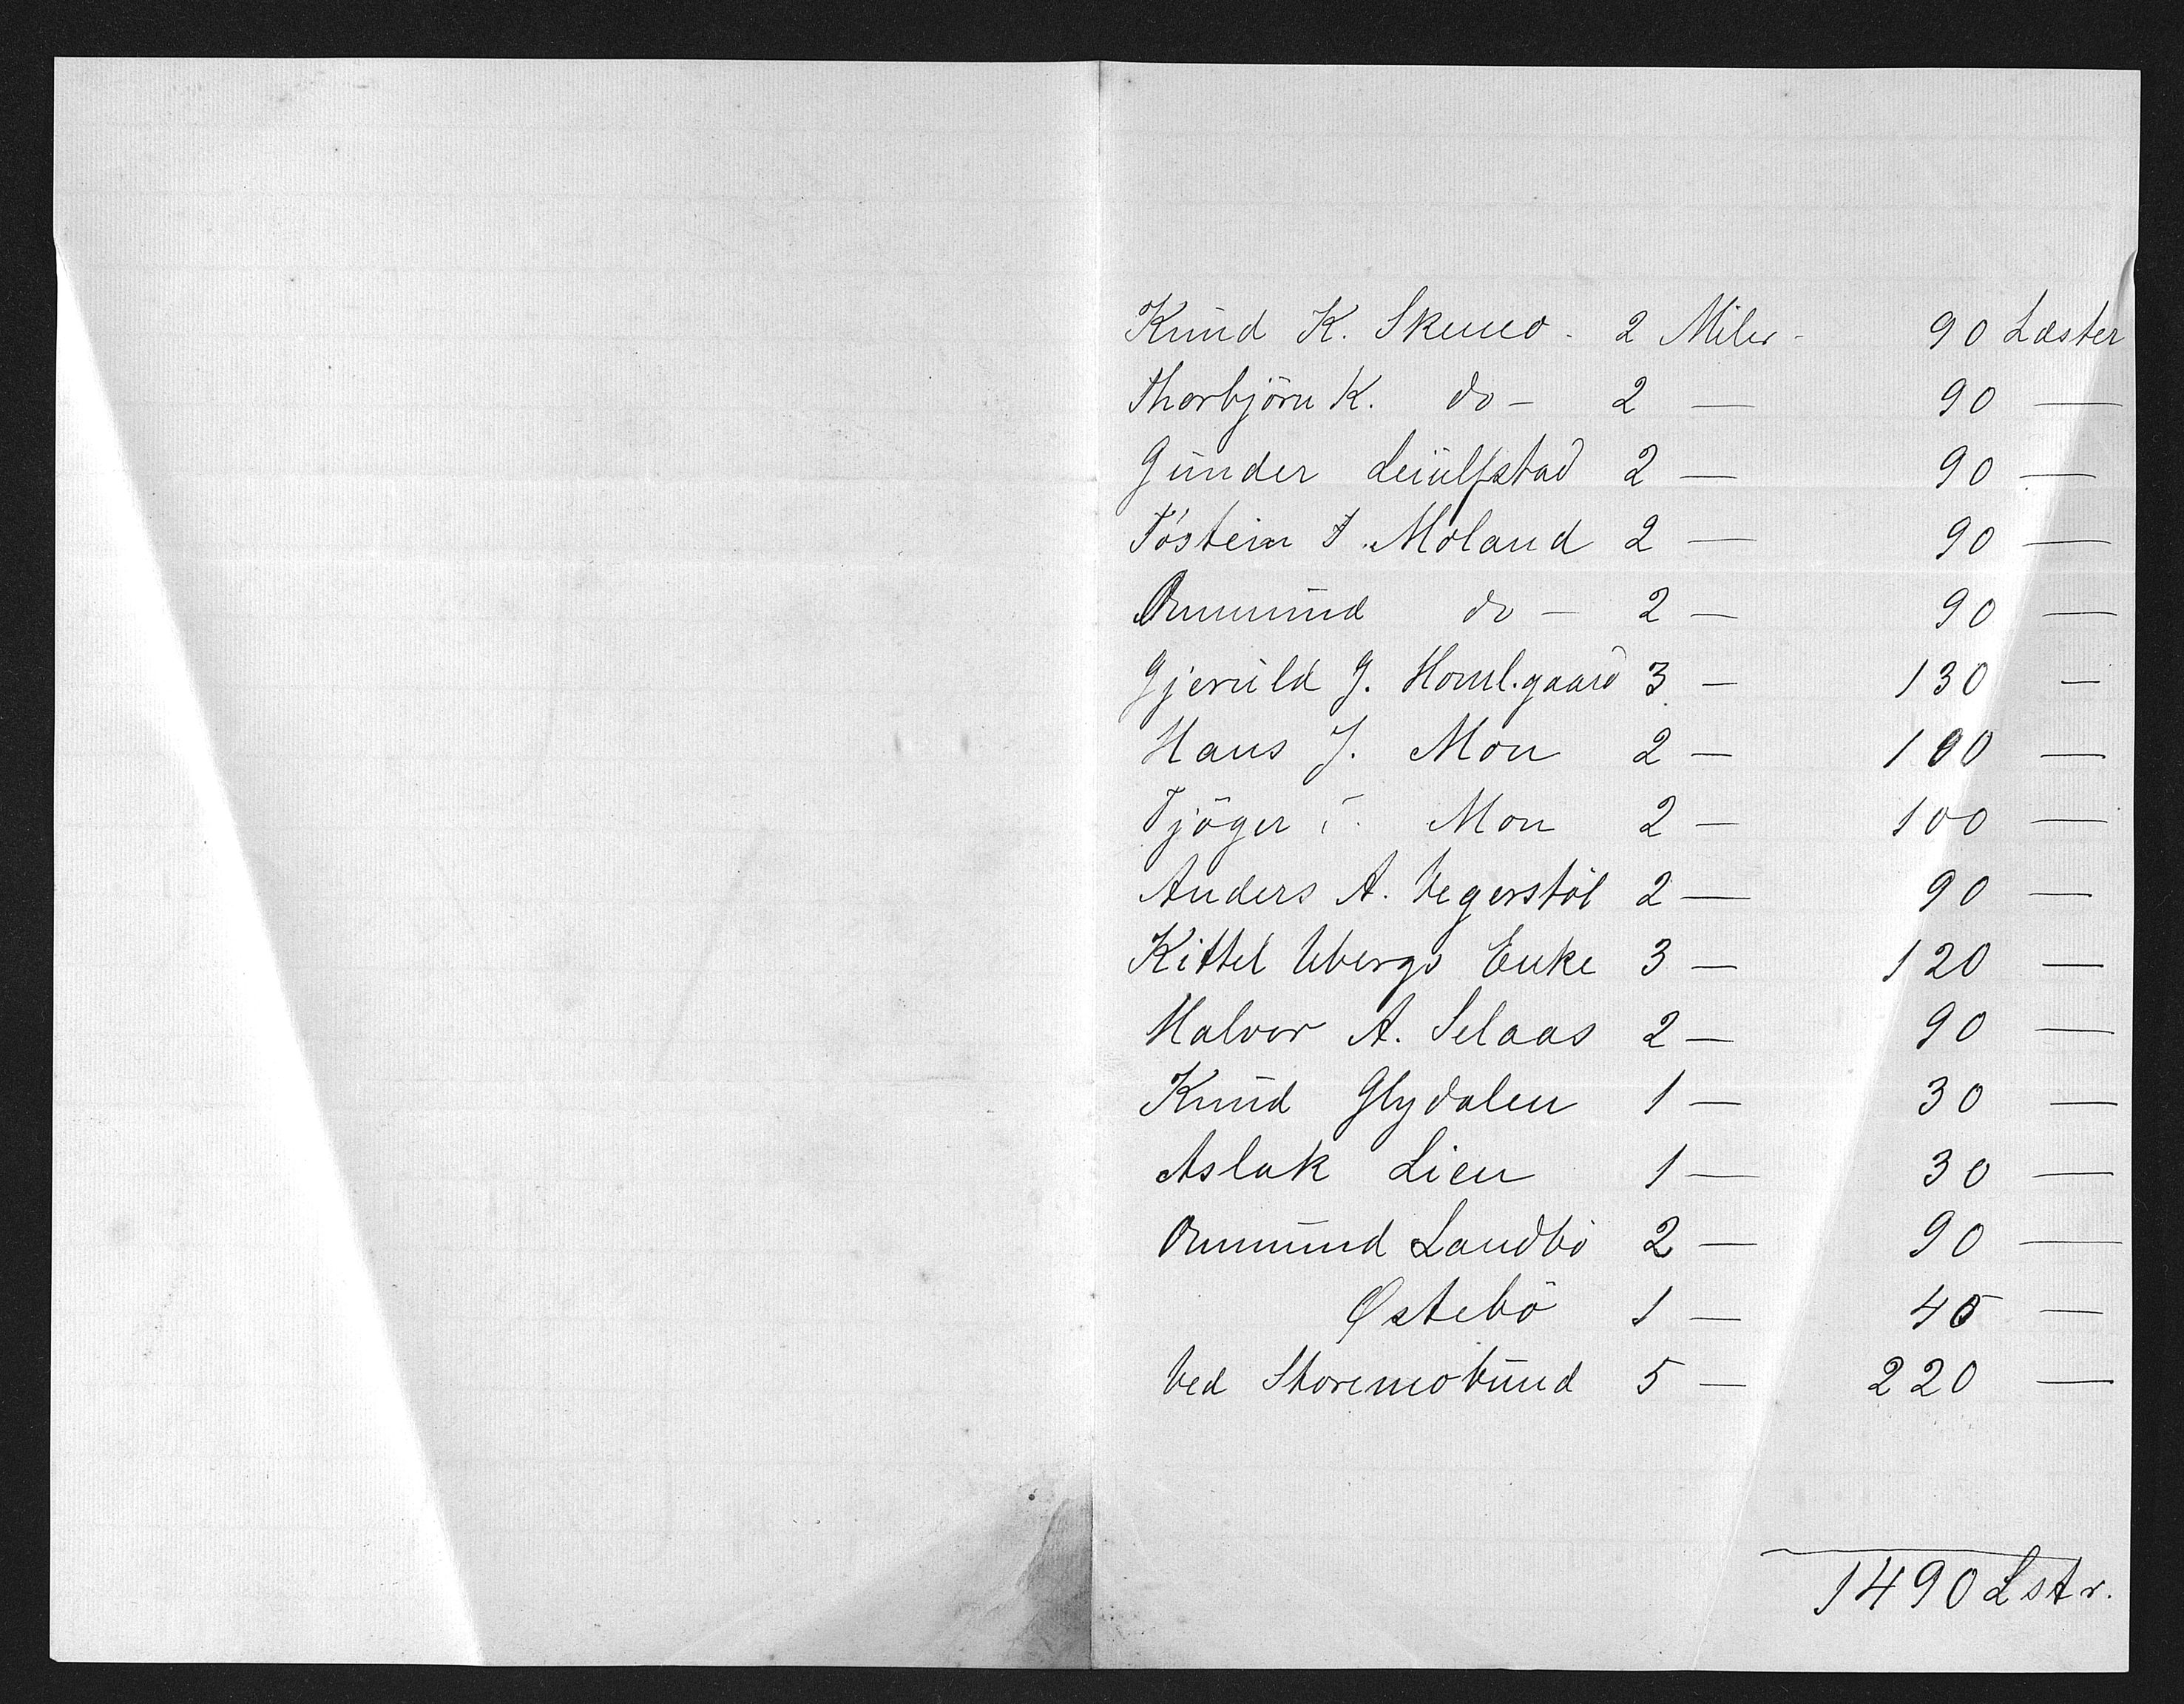 Knud K. Skeneo - 2 Miler - 90 Læster
Thorbjörn K. do - 2 — 90 —
Gunder Leiulfstad 2 — 90 —
Tóstein T. Moland 2 — 90 —
Ommund do — 2 — 90 —
Gjeruld G. Homl.gaard 3 — 130 —
Hans J. Mon 2 — 100 —
Tjöger T. Mon 2 — 100 —
Anders A. Vegerstöl 2 — 90 —
Kittel Ubergs Enke 3 — 120 —
Halvor A. Selaas 2 — 90 —
Knud Glydalen 1 — 30 —
Aslak Lien 1 — 30 —
Ommund Landbö 2 — 90 —
Østebö 1 — 40 —
Ved Storemobund 5 — 220 —
1490 Lstr.